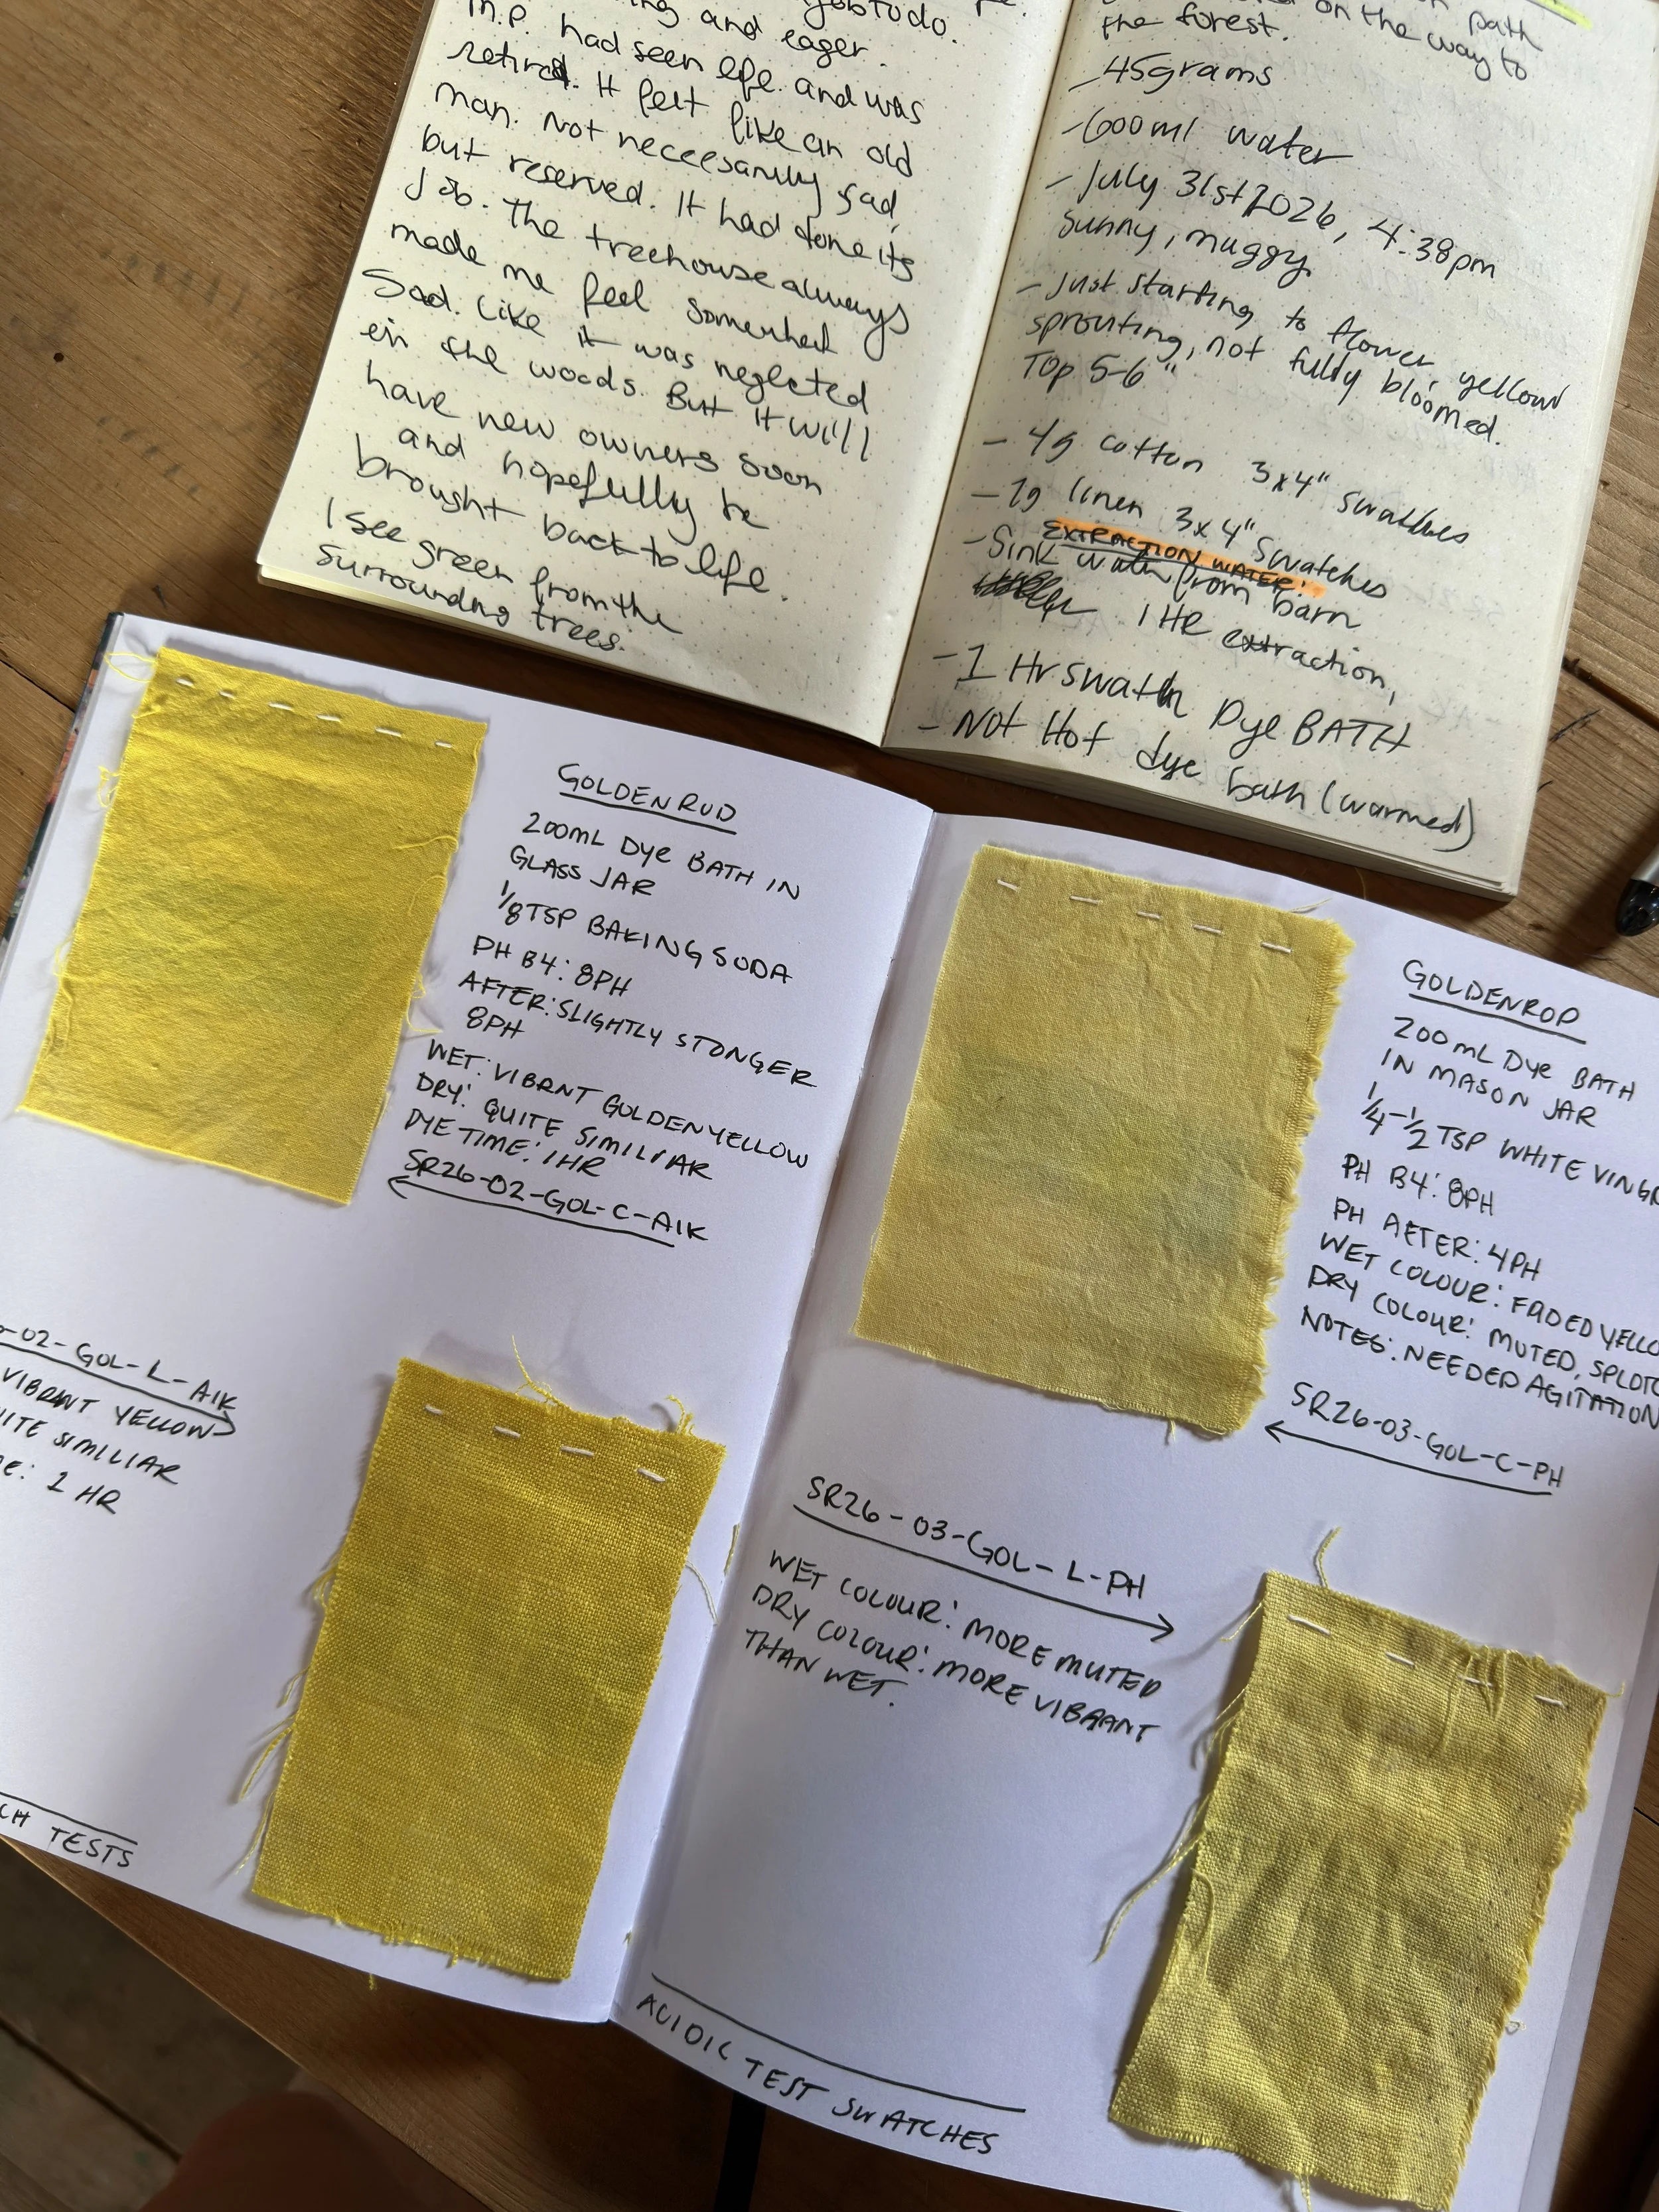 and eager.
M.P. had seen life and was
retired. It felt like an old
man. Not neceesarily sad,
but reserved. It had done its
Job. The treehouse always
made me feel somewhat
Sad. Like it was neglected
in the woods. But it will
have new owners soon
and hopefully be
brought back to life.
I see green from the
surrounding trees.
path
on the way to
the forest.
- 45grams
- 600ml water
- July 31st 2026, 4:38pm
Sunny, muggy.
- Just starting to flower, yellow
sprouting, not fully bloomed.
Top 5-6"
- 4g cotton 3x4" swatches
- 7g linen 3x4" swatches
EXTRACTION WATER:
- Sink water from barn
1 HR extraction,
- 1 Hr swatch Dye BATH
- Not Hot dye bath (warmed)
GOLDENRUD
200mL DYE BATH IN
GLASS JAR
1/8 TSP BAKING SODA
PH B4: 8PH
AFTER: SLIGHTLY STONGER
8PH
WET: VIBRNT GOLDENYELLOW
DRY: QUITE SIMILIAR
DYE TIME: 1HR
SR26-02-GOL-C-AIK
-02-GOL-L-AIK
VIBRNT YELLOW
SIMILIAR
1 HR
TESTS
GOLDENROD
200mL DYE BATH
IN MASON JAR
1/4-1/2 TSP WHITE
PH B4: 8PH
PH AFTER: 4PH
WET COLOUR: FADED
DRY COLOUR: MUTED,
NOTES: NEEDED AGITATION
SR26-03-GOL-C-PH
SR26-03-GOL-L-PH
WET COLOUR: MORE MUTED
DRY COLOUR: MORE VIBRANT
THAN WET.
ACIDIC TEST SWATCHES